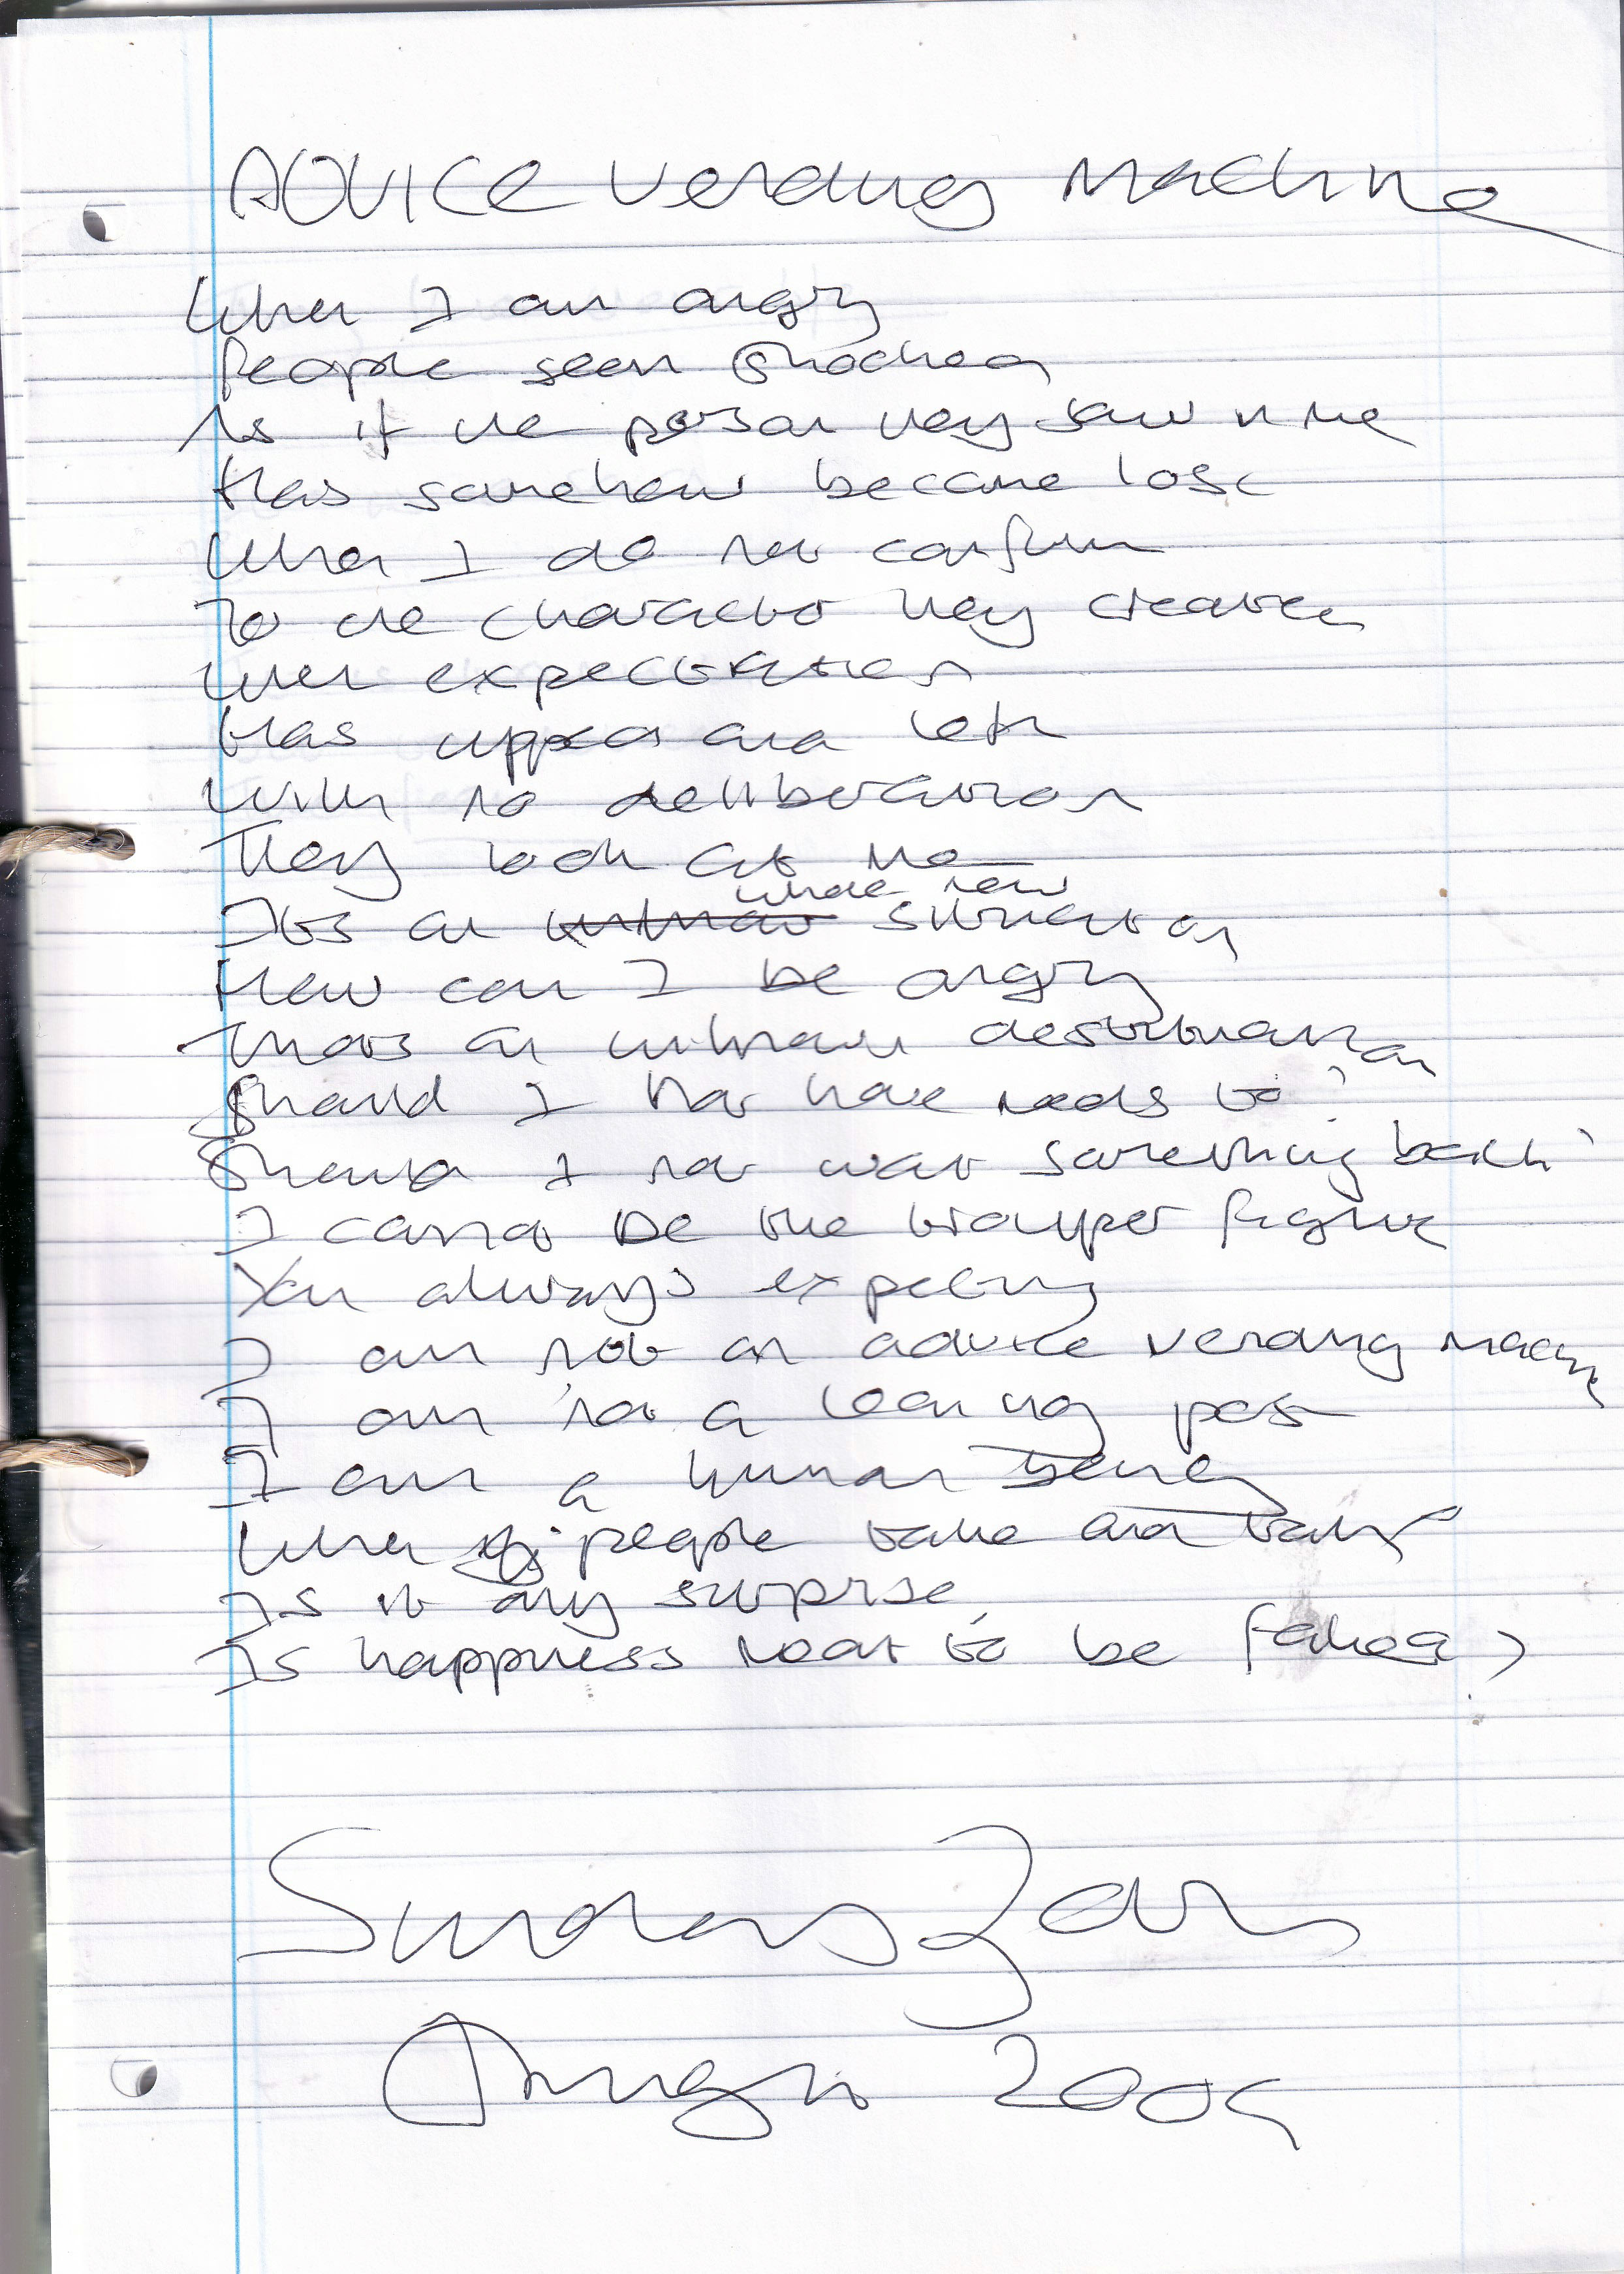 ADVICE Vending Machine
When I am angry
People seem shocked
As if the person they saw in me
Has somehow become lost
When I do not conform
To the character they created
When expectation
Has upped and left
With no deliberation
They look at me
Its an whole new situation
How can I be angry
Thats an unknown destination
Should I not have needs to?
Should I not want something back?
I cannot be the trouper figure
You always expecting
I am not an advice vending machine
I am not a leaning post
I am a human being
When people take and take
Is it any surprise
Is happiness meant to be faked?
August 2005